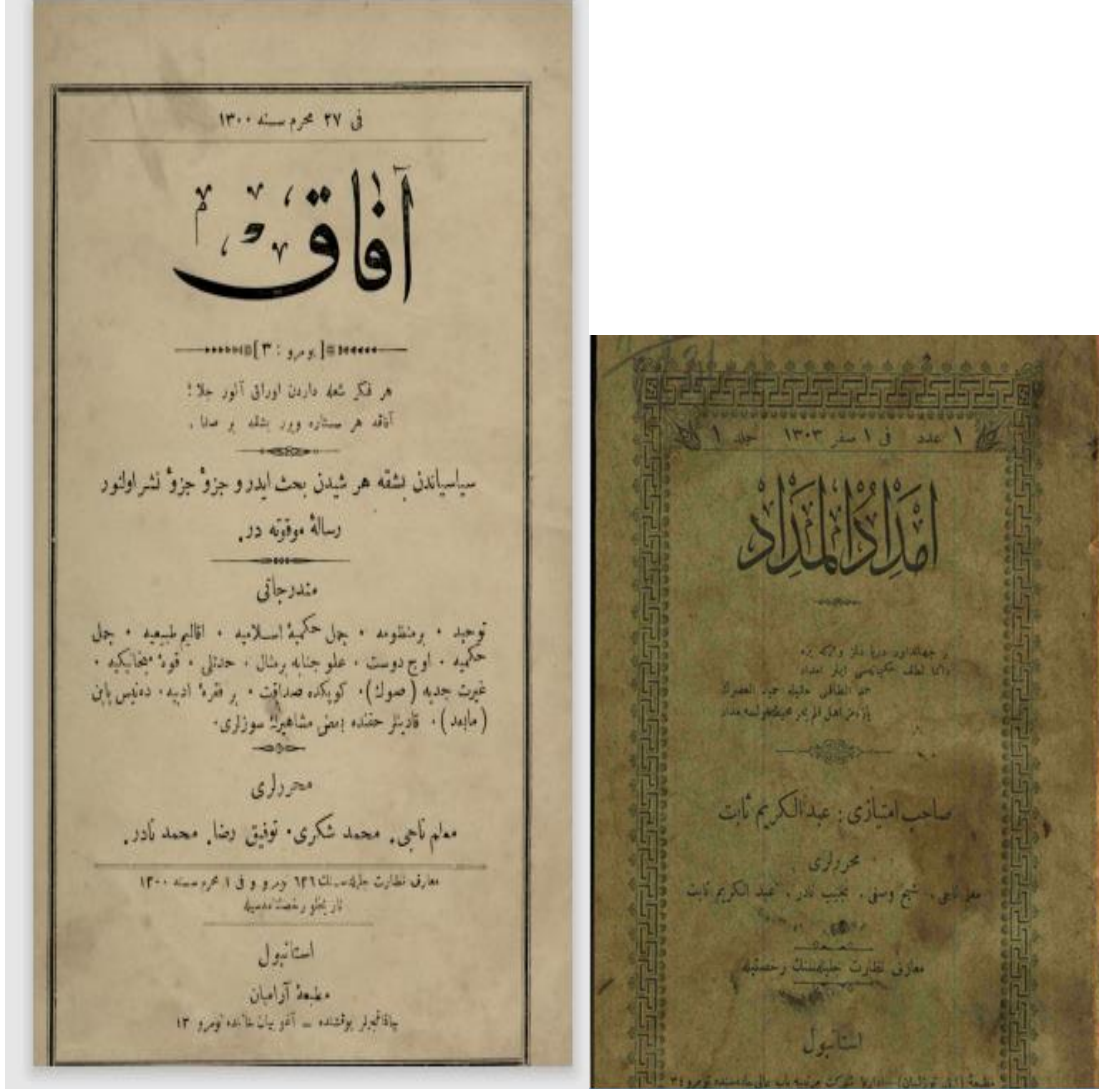 فى ٢٧ محرم سنه ١٣٠٠
آفاق
[ نومرو : ٣ ]
هر فكر شعله داردن اوراق آلور جلا ؛
آفاقه هر ستاره ويرر بشقه بر صفا .
سياسياندن بشقه هر شيدن بحث ايدر و جزؤ جزؤ نشر اولنور
رسالهٔ موقوته در .
مندرجاتى
توحيد ٠ برمنظومه ٠ جمل حكميهٔ اسلاميه ٠ اقاليم طبيعيه ٠ جمل
حكميه ٠ اوج دوست ٠ علو جنابه برمثال ٠ حدتلى ٠ قوهٔ ميخانيكيه ٠
غيرت جديه ( صوك ) ٠ كوپكده صداقت ٠ بر فقرهٔ ادبيه ٠ دهنيس پاپن
( مابعد ) ٠ قادينلر حقنده بعض مشاهيرك سوزلرى ٠
محررلرى
معلم ناجى . محمد شكرى ٠ توفيق رضا . محمد نادر .
معارف نظارت جليله سنك ٦٢٦ نومرو و فى ١ محرم سنه ١٣٠٠
تاريخلو رخصتنامه سيله
استانبول
مطبعهٔ آراميان
چاقمقجيلر يوقشنده — آغوبيان خاننده نومرو ١٣
١ عدد فى ١ صفر ١٣٠٣ جلد ١
امْدَادُ الْمِدَادْ
دائما لطف
صاحب امتيازى : عبد الكريم ثابت
محررلرى
معلم ناجى . شيخ وصفى . نجيب نادر . عبد الكريم ثابت
معارف نظارت جليله سنك رخصتيله
استانبول
شركت مرتبيه باب عالى جاده سنده نومرو ٣٤